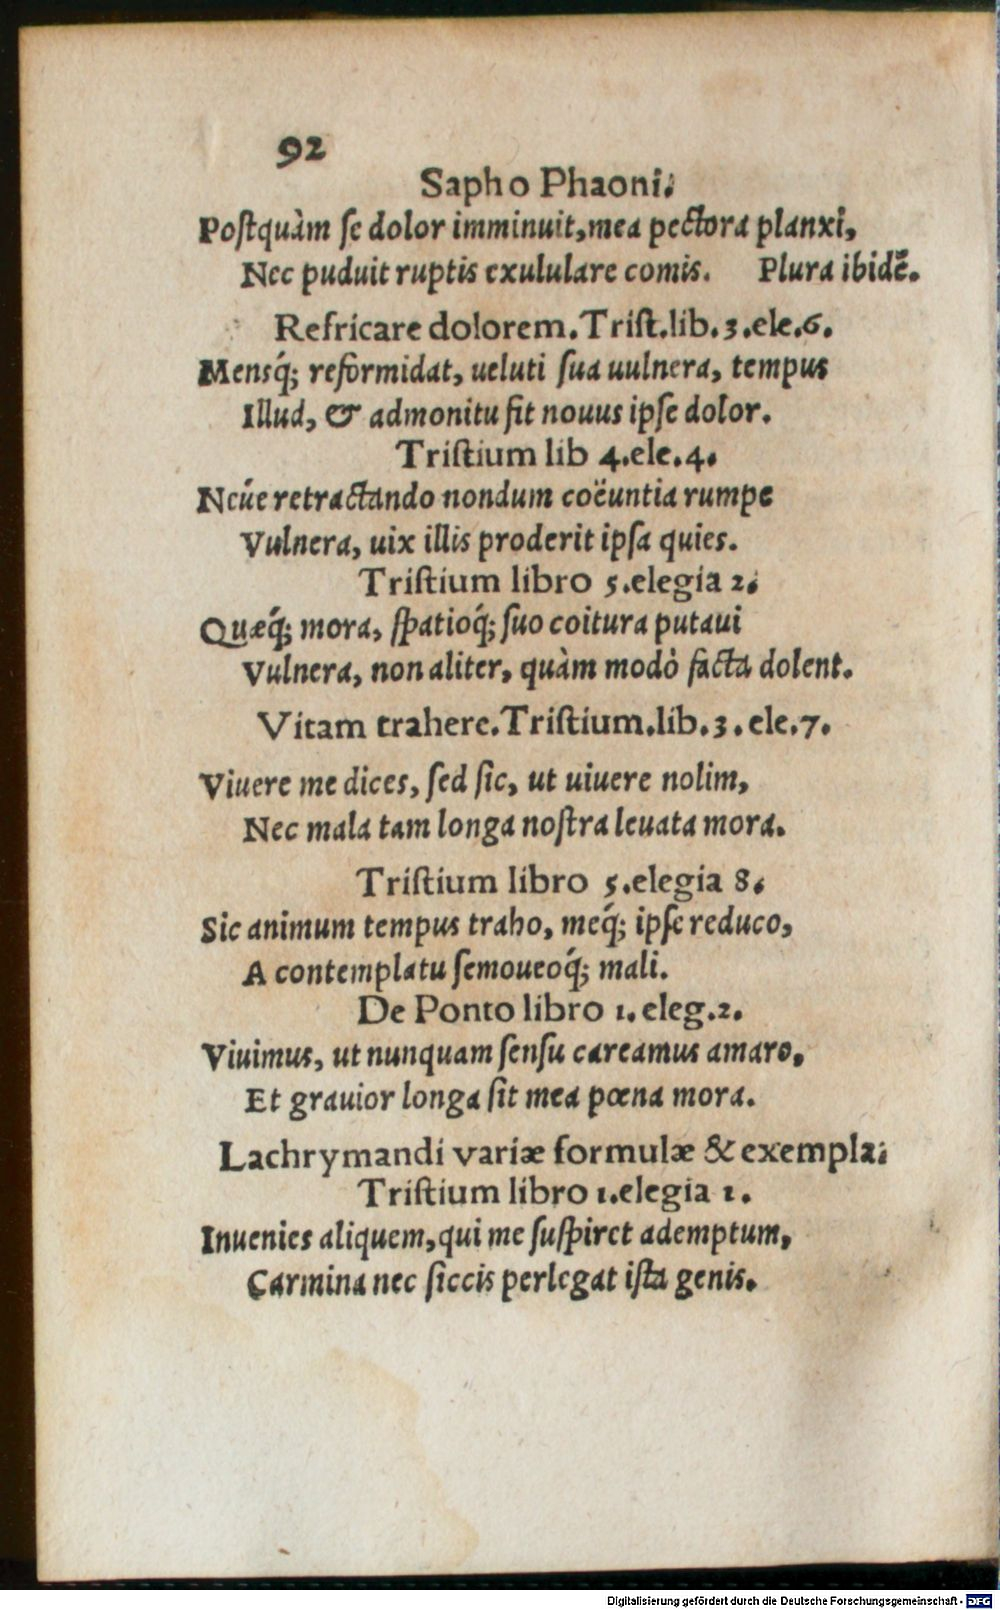 92
Sapho Phaoni.
Poſtquàm ſe dolor imminuit, mea pectora planxi,
Nec puduit ruptis exululare comis. Plura ibidẽ.
Refricare dolorem. Triſt. lib. 3. ele. 6.
Mensq́; reformidat, ueluti ſua uulnera, tempus
Illud, & admonitu fit nouus ipſe dolor.
Triſtium lib 4. ele. 4.
Neúe retractando nondum coëuntia rumpe
Vulnera, uix illis proderit ipſa quies.
Triſtium libro 5. elegia 2.
Quæq́; mora, ſpatioq́; ſuo coitura putaui
Vulnera, non aliter, quàm modò facta dolent.
Vitam trahere. Triſtium. lib. 3. ele. 7.
Viuere me dices, ſed ſic, ut uiuere nolim,
Nec mala tam longa noſtra leuata mora.
Triſtium libro 5. elegia 8.
Sic animum tempus traho, meq́; ipſe reduco,
A contemplatu ſemoueoq́; mali.
De Ponto libro 1. eleg. 2.
Viuimus, ut nunquam ſenſu careamus amaro,
Et grauior longa ſit mea pœna mora.
Lachrymandi variæ formulæ & exempla.
Triſtium libro 1. elegia 1.
Inuenies aliquem, qui me ſuſpiret ademptum,
Carmina nec ſiccis perlegat iſta genis.
Digitalisierung gefördert durch die Deutsche Forschungsgemeinschaft - DFG